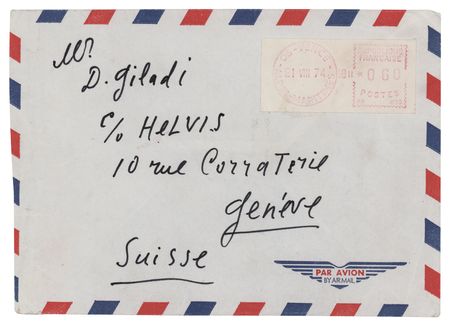 Mr.
D. Giladi
c/o HELVIS
10 rue Corraterie
Genève
Suisse
21 VIII 74
REPUBLIQUE
FRANÇAISE
0.60
POSTES
PAR AVION
BY AIR MAIL